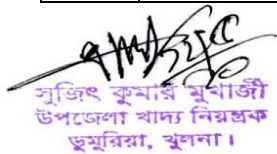 সুজিৎ কুমার মুখার্জী
উপজেলা খাদ্য নিয়ন্ত্রক
ডুমুরিয়া, খুলনা।